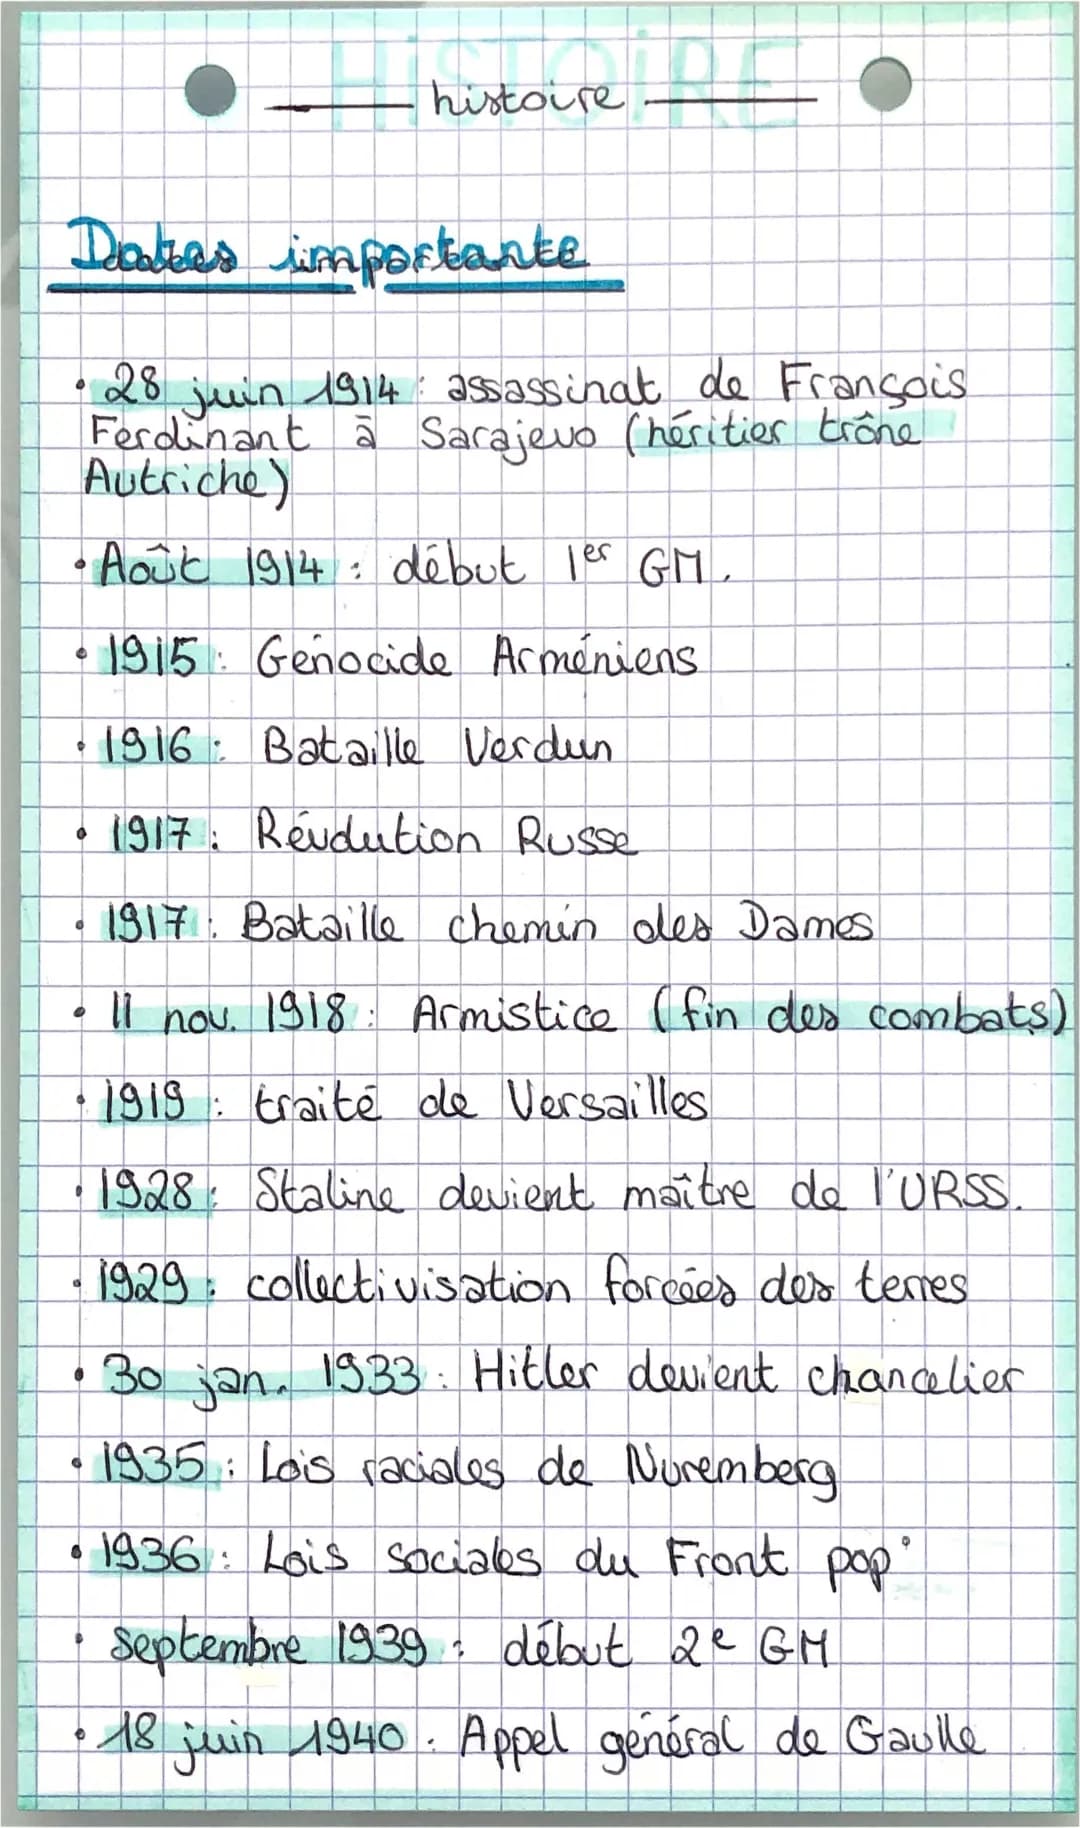 HiSTOiRE
histoire
Dates importante
• 28 juin 1914 : assassinat de François
Ferdinant à Sarajevo (héritier trône
Autriche)
• Août 1914 : début 1er GM.
• 1915 : Génocide Arméniens
• 1916 : Bataille Verdun
• 1917 : Révolution Russe
• 1917 : Bataille chemin des Dames
• 11 nov. 1918 : Armistice (fin des combats)
• 1919 : traité de Versailles
• 1928 : Staline devient maître de l'URSS.
• 1929 : collectivisation forcées des terres
• 30 jan. 1933 : Hitler devient chancelier
• 1935 : Lois raciales de Nuremberg
• 1936 : Lois sociales du Front pop°
• septembre 1939 : début 2e GM
• 18 juin 1940 : Appel général de Gaulle